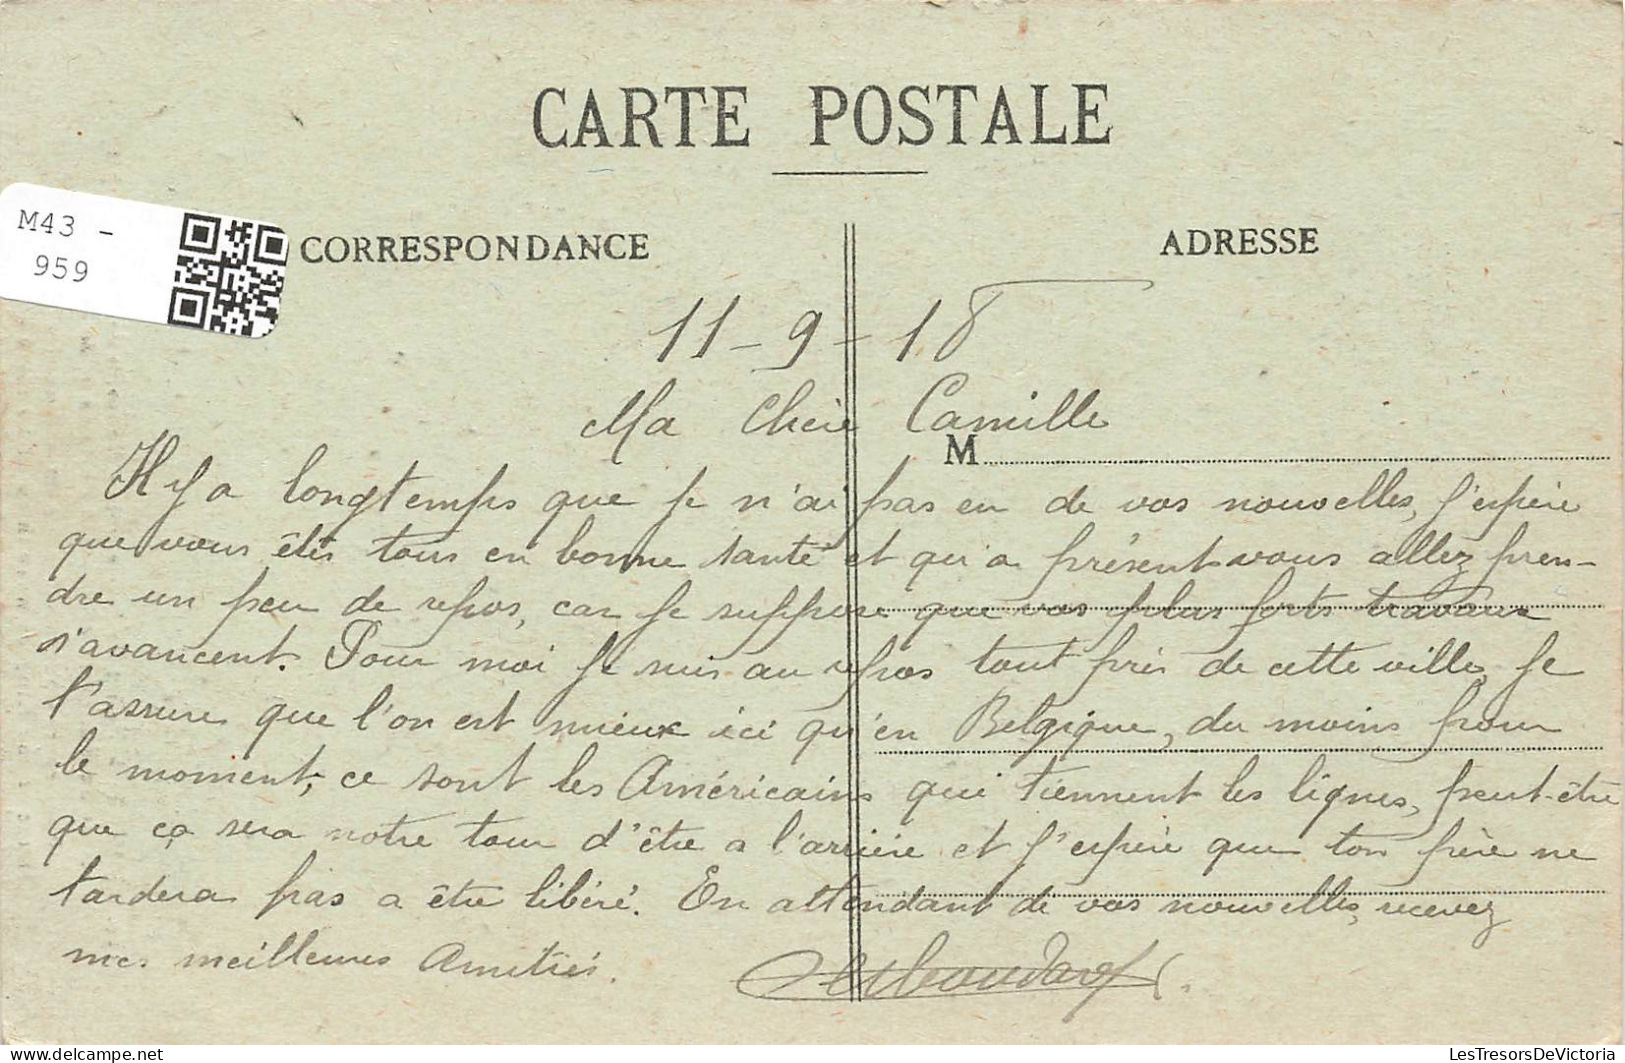 CARTE POSTALE
M43 -
959
CORRESPONDANCE
ADRESSE
11-9-18
Ma Chère Camille
M
Il y a longtemps que je n'ai pas eu de vos nouvelles, j'espère
que vous êtes tous en bonne santé et qu'a présent vous allez pren-
dre un peu de repos, car je suppose que vos plus forts travaux
s'avancent. Pour moi je suis au repos tout près de cette ville, je
t'assure que l'on est mieux ici qu'en Belgique, du moins pour
le moment, ce sont les Américains qui tiennent les lignes, peut-être
que ça sera notre tour d'être a l'arrière et j'espère que ton frère ne
tardera pas a être libéré. En attendant de vos nouvelles, recevez
mes meilleures Amitiés.
Delcampe.net
LesTresorsDeVictoria